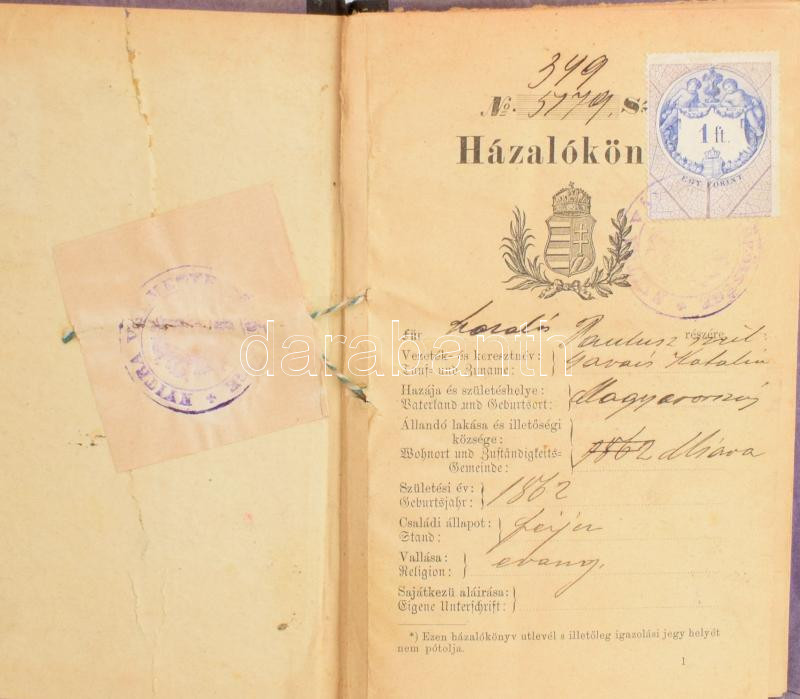 349
№. 5179. S
1 ft.
EGY FORINT
Házalókön
NYITRA VÁ
für részére
Vezeték- és keresztnév: Paulusz
Tauf- und Zuname: Katalin
Hazája és születéshelye: Magyarország
Vaterland und Geburtsort:
Állandó lakása és illetőségi
községe: 1862 Miava
Wohnort und Zuständigkeits-
Gemeinde:
Születési év: 1862
Geburtsjahr:
Családi állapot: férjes
Stand:
Vallása: evang.
Religion:
Sajátkezű aláirása:
Eigene Unterschrift:
*) Ezen házalókönyv utlevél s illetőleg igazolási jegy helyét
nem pótolja.
1
darabanth